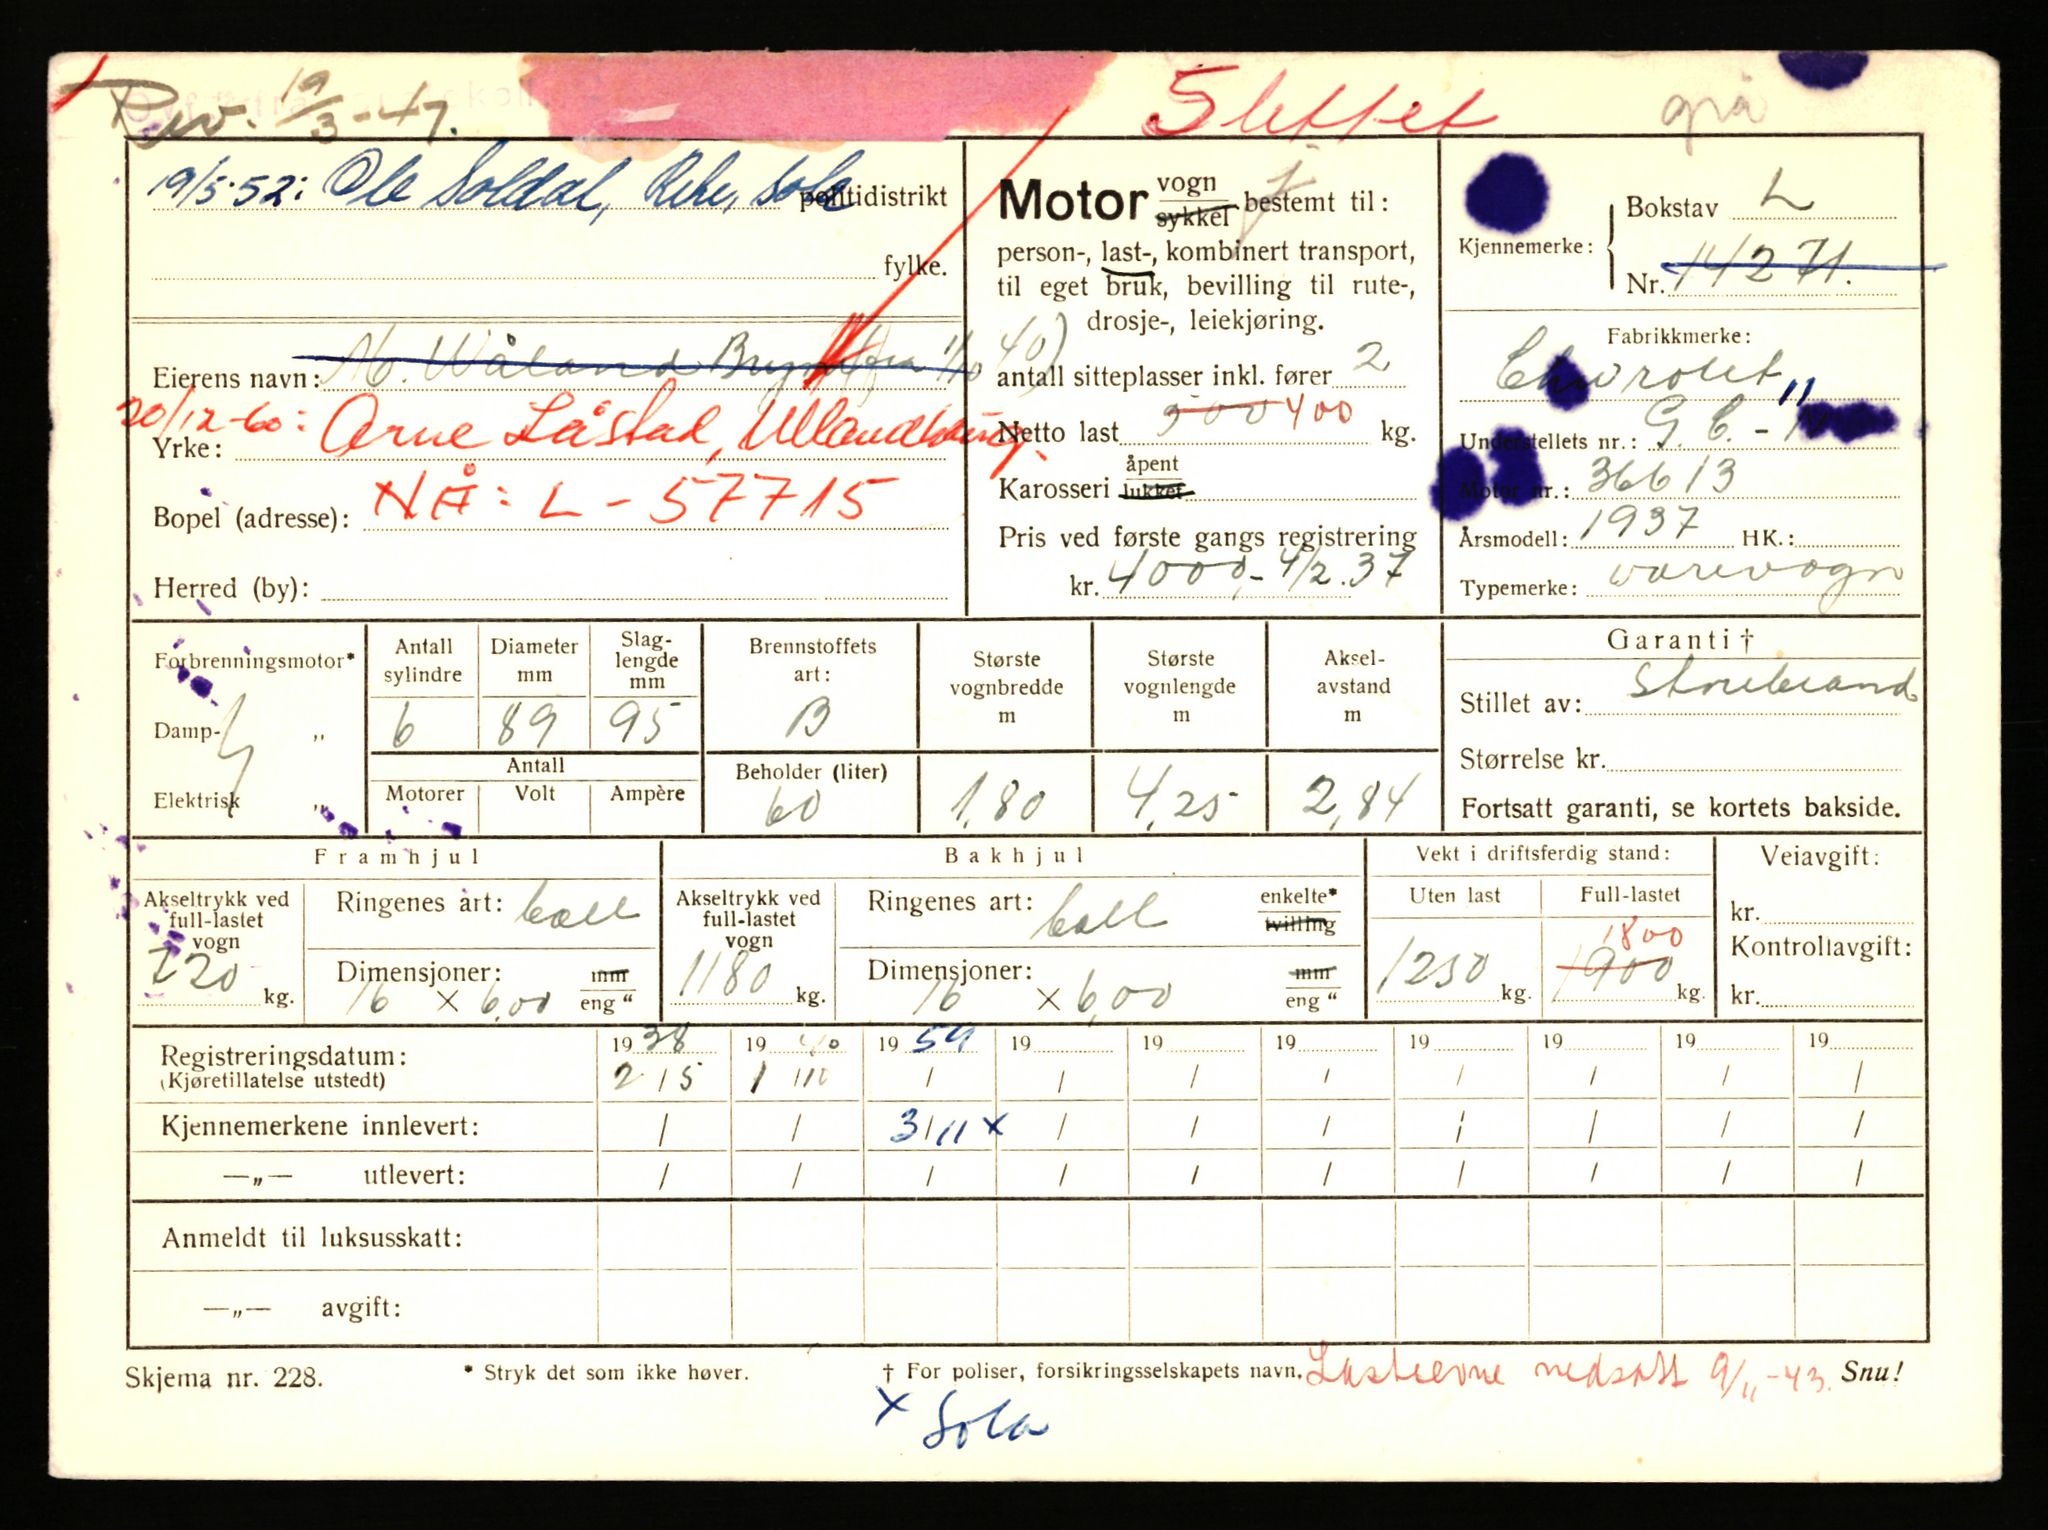 Rev. 19/3-47.
Slettet
grå
19/5-52: Ole Soldal, Reke, Sola politidistrikt
fylke.
Eierens navn: M. Wåland Bryne (fra 1/10 40)
20/12-60: Arne Låstad, Ullandhaug.
Yrke:
Bopel (adresse): NÅ: L - 57715
Herred (by):
Motor vogn sykkel bestemt til:
person-, last-, kombinert transport,
til eget bruk, bevilling til rute-,
drosje-, leiekjøring.
antall sitteplasser inkl. fører 2
Netto last 500 400 kg.
Karosseri åpent lukket
Pris ved første gangs registrering
kr. 4000,- 4/2.37
Kjennemerke: Bokstav L
Nr. 14271.
Fabrikkmerke:
Chevrolet
Understellets nr.: G.C. -
Motor nr.: 36613
Årsmodell: 1937 HK.:
Typemerke: varevogn
Forbrenningsmotor*
Damp- „
Elektrisk „
Antall sylindre 6
Diameter mm 89
Slag-lengde mm 95
Antall
Motorer Volt Ampère
Brennstoffets art: B
Beholder (liter) 60
Største vognbredde m 1,80
Største vognlengde m 4,25
Aksel-avstand m 2,84
Garanti †
Stillet av: Storebrand
Størrelse kr.
Fortsatt garanti, se kortets bakside.
Framhjul
Akseltrykk ved full-lastet vogn 720 kg.
Ringenes art: ball
Dimensjoner: mm eng “
16 × 6,00
Bakhjul
Akseltrykk ved full-lastet vogn 1180 kg.
Ringenes art: ball enkelte* tvilling
Dimensjoner: mm eng “
16 × 6,00
Vekt i driftsferdig stand:
Uten last 1250 kg.
Full-lastet 1800 1900 kg.
Veiavgift:
kr.
Kontrollavgift:
kr.
Registreringsdatum: 19 38 19 40 19 59 19 19 19 19 19 19 19
(Kjøretillatelse utstedt) 2/5 1/10 / / / / / / / /
Kjennemerkene innlevert: / / 3/11 x / / / / / / /
—„— utlevert: / / / / / / / / / /
Anmeldt til luksusskatt:
—„— avgift:
Skjema nr. 228. * Stryk det som ikke høver. † For poliser, forsikringsselskapets navn. Lasteevne nedsatt 9/11-43. Snu!
x Sola